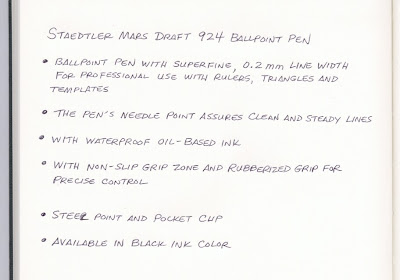 STAEDTLER MARS DRAFT 924 BALLPOINT PEN
• BALLPOINT PEN WITH SUPERFINE, 0.2 mm LINE WIDTH
FOR PROFESSIONAL USE WITH RULERS, TRIANGLES AND
TEMPLATES
• THE PEN'S NEEDLE POINT ASSURES CLEAN AND STEADY LINES
• WITH WATERPROOF OIL-BASED INK
• WITH NON-SLIP GRIP ZONE AND RUBBERIZED GRIP FOR
PRECISE CONTROL
• STEEL POINT AND POCKET CLIP
• AVAILABLE IN BLACK INK COLOR